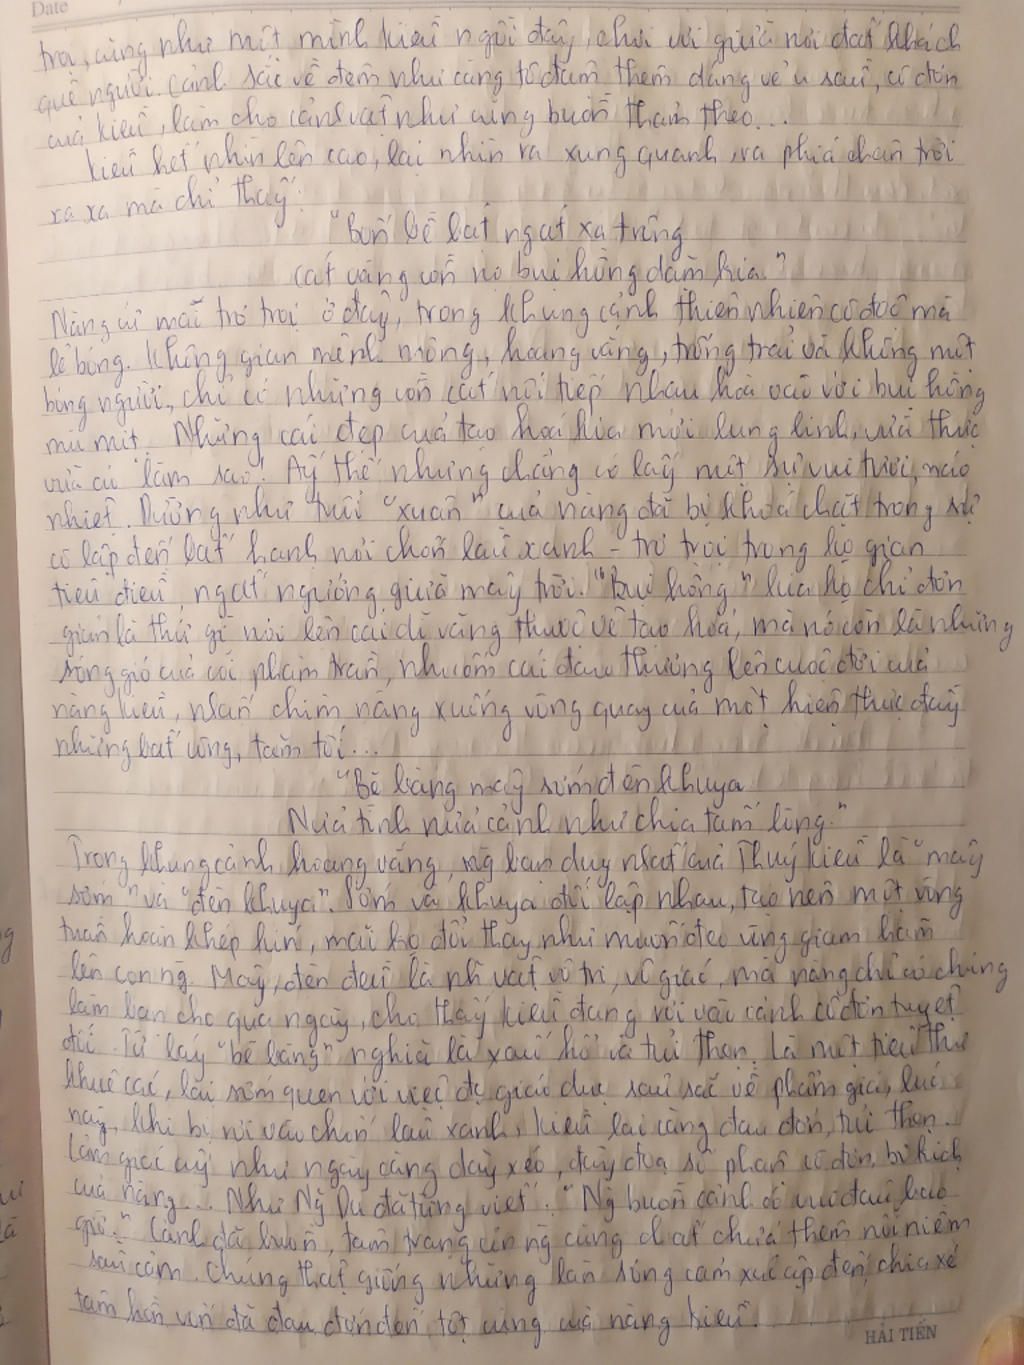 Date
trọi, cũng như một mình Kiều ngồi đây, chơi vơi giữa nơi đất khách
quê người. Cảnh sắc về đêm như càng tô đậm thêm dáng vẻ u sầu, cô đơn
của Kiều, làm cho cảnh vật như cũng buồn thảm theo...
Kiều hết nhìn lên cao, lại nhìn ra xung quanh, ra phía chân trời
xa xa mà chỉ thấy:
"Bốn bề bát ngát xa trông
Cát vàng cồn nọ bụi hồng dặm kia."
Nàng cứ mãi trơ trọi ở đây, trong khung cảnh thiên nhiên cô độc mà
lẻ bóng. Không gian mênh mông, hoang vắng, trống trải và không một
bóng người, chỉ có những cồn cát nối tiếp nhau hoà vào với bụi hồng
mù mịt. Những cái đẹp của tạo hoá kia mới lung linh, vừa thực
vừa ảo làm sao! Ấy thế nhưng chẳng có lấy một sự vui tươi, náo
nhiệt. Dường như tuổi "xuân" của nàng đã bị khoá chặt trong sự
cô lập đến bất hạnh nơi chốn lầu xanh - trơ trọi trong không gian
tiêu điều, ngất ngưởng giữa mây trời. "Bụi hồng" kia ko chỉ đơn
giản là thứ gì nói lên cái dĩ vãng thuộc về tạo hoá, mà nó còn là những
sóng gió của cõi phàm trần, nhuốm cái đau thương lên cuộc đời của
nàng Kiều, nhấn chìm nàng xuống vòng quay của một hiện thực đầy
những bất công, tăm tối...
"Bẽ bàng mây sớm đèn khuya
Nửa tình nửa cảnh như chia tấm lòng."
Trong khung cảnh hoang vắng, ng bạn duy nhất của Thuý Kiều là "mây
sớm" và "đèn khuya". Sớm và khuya đối lập nhau, tạo nên một vòng
tuần hoàn khép kín, mãi ko đổi thay như muốn đeo vòng giam hãm
lên con ng. Mây, đèn đều là nh vật vô tri, vô giác, mà nàng chỉ có chúng
làm bạn cho qua ngày, cho thấy Kiều đang rơi vào cảnh cô đơn tuyệt
đối. Từ láy "bẽ bàng" nghĩa là xấu hổ và tủi thẹn. Là một tiểu thư
khuê các, lại sớm quen với việc đc giáo dục sâu sắc về phẩm giá, lúc
này, khi bị rơi vào chốn lầu xanh, Kiều lại càng đau đớn, tủi thẹn.
Cảm giác ấy như ngày càng dày xéo, đày đoạ số phận cô đơn, bi kịch
của nàng... Như Ng Du đã từng viết: "Ng buồn cảnh có vui đâu bao
giờ." Cảnh đã buồn, tâm trạng con ng càng chất chứa thêm nỗi niềm
sầu cảm. Chúng thật giống những làn sóng cảm xúc ập đến, chia xé
tâm hồn vốn đã đau đớn đến tột cùng của nàng Kiều.
HẢI TIẾN